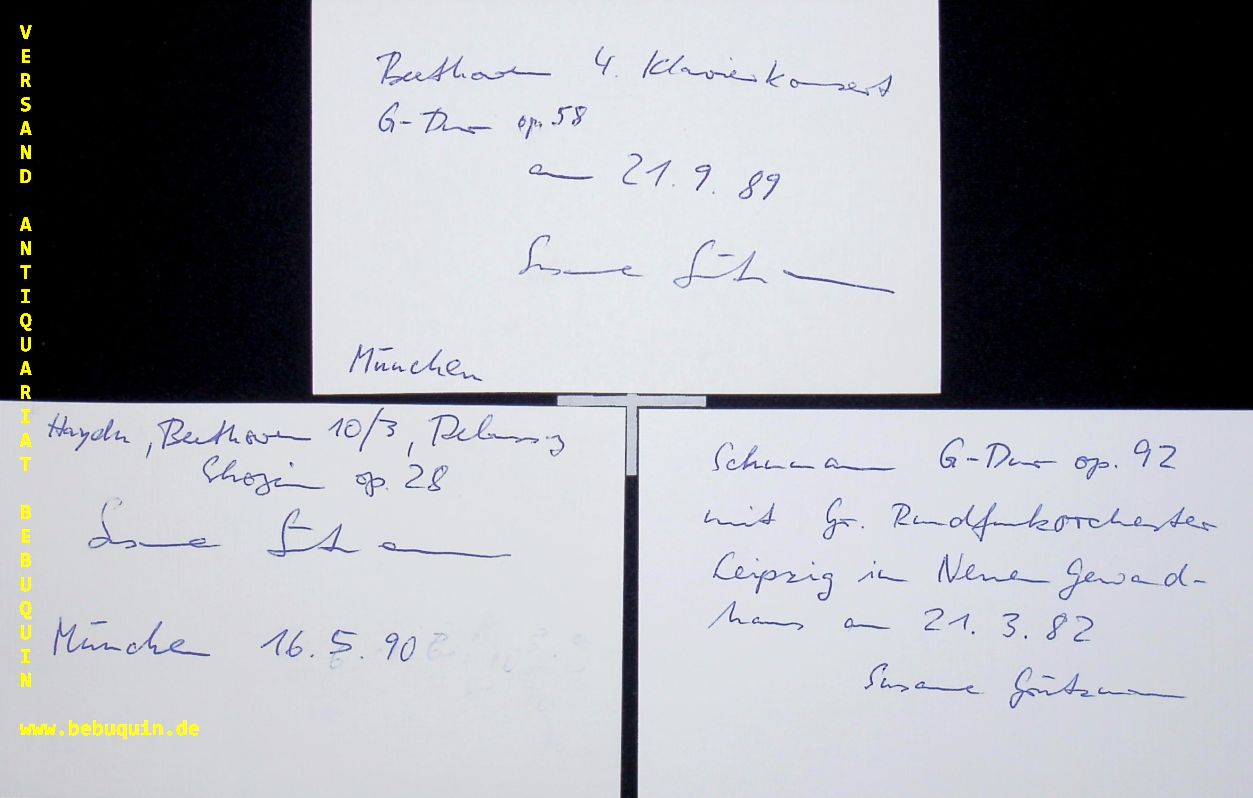 VERSAND ANTIQUARIAT BEBUQUIN
www.bebuquin.de
Beethoven 4. Klavierkonzert
G-Dur op. 58
am 21. 9. 89
Susanne Grützmann
München
Haydn, Beethoven 10/3, Debussy
Chopin op. 28
Susanne Grützmann
München 16. 5. 90
Schumann G-Dur op. 92
mit Gr. Rundfunkorchester
Leipzig im Neuen Gewand-
haus am 21. 3. 82
Susanne Grützmann